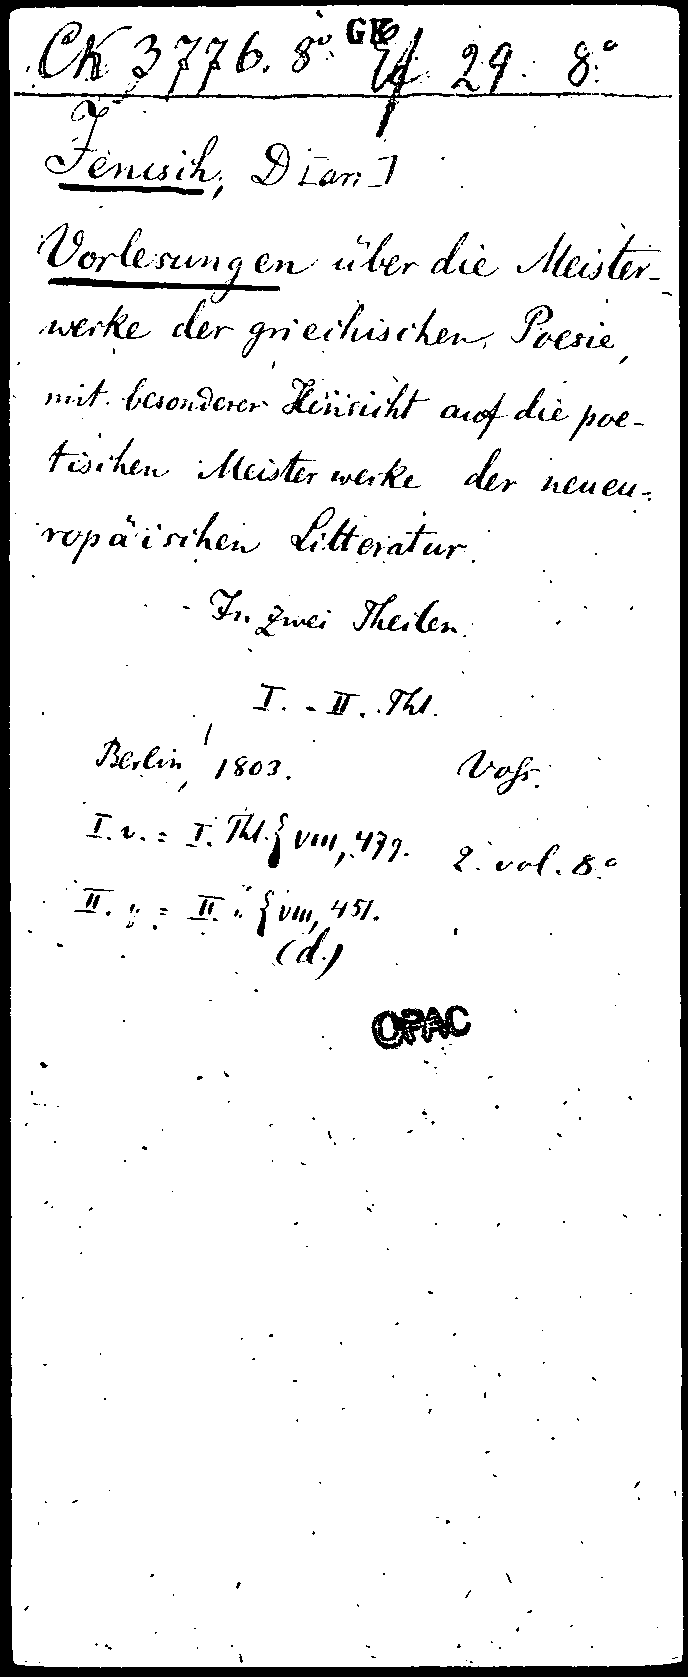 CK 3776. 8° GK 29. 8°
Jenisch, D[an.]
Vorlesungen über die Meister-
werke der griechischen Poesie,
mit besonderer Hinsicht auf die poe-
tischen Meisterwerke der neueu-
ropäischen Litteratur.
In zwei Theilen.
I. - II. Thl.
Berlin, 1803. Voss.
I. v. = I. Thl. { VIII, 479. 2. vol. 8.°
II. „ = II. „ { VIII, 451.
(d.)
OPAC